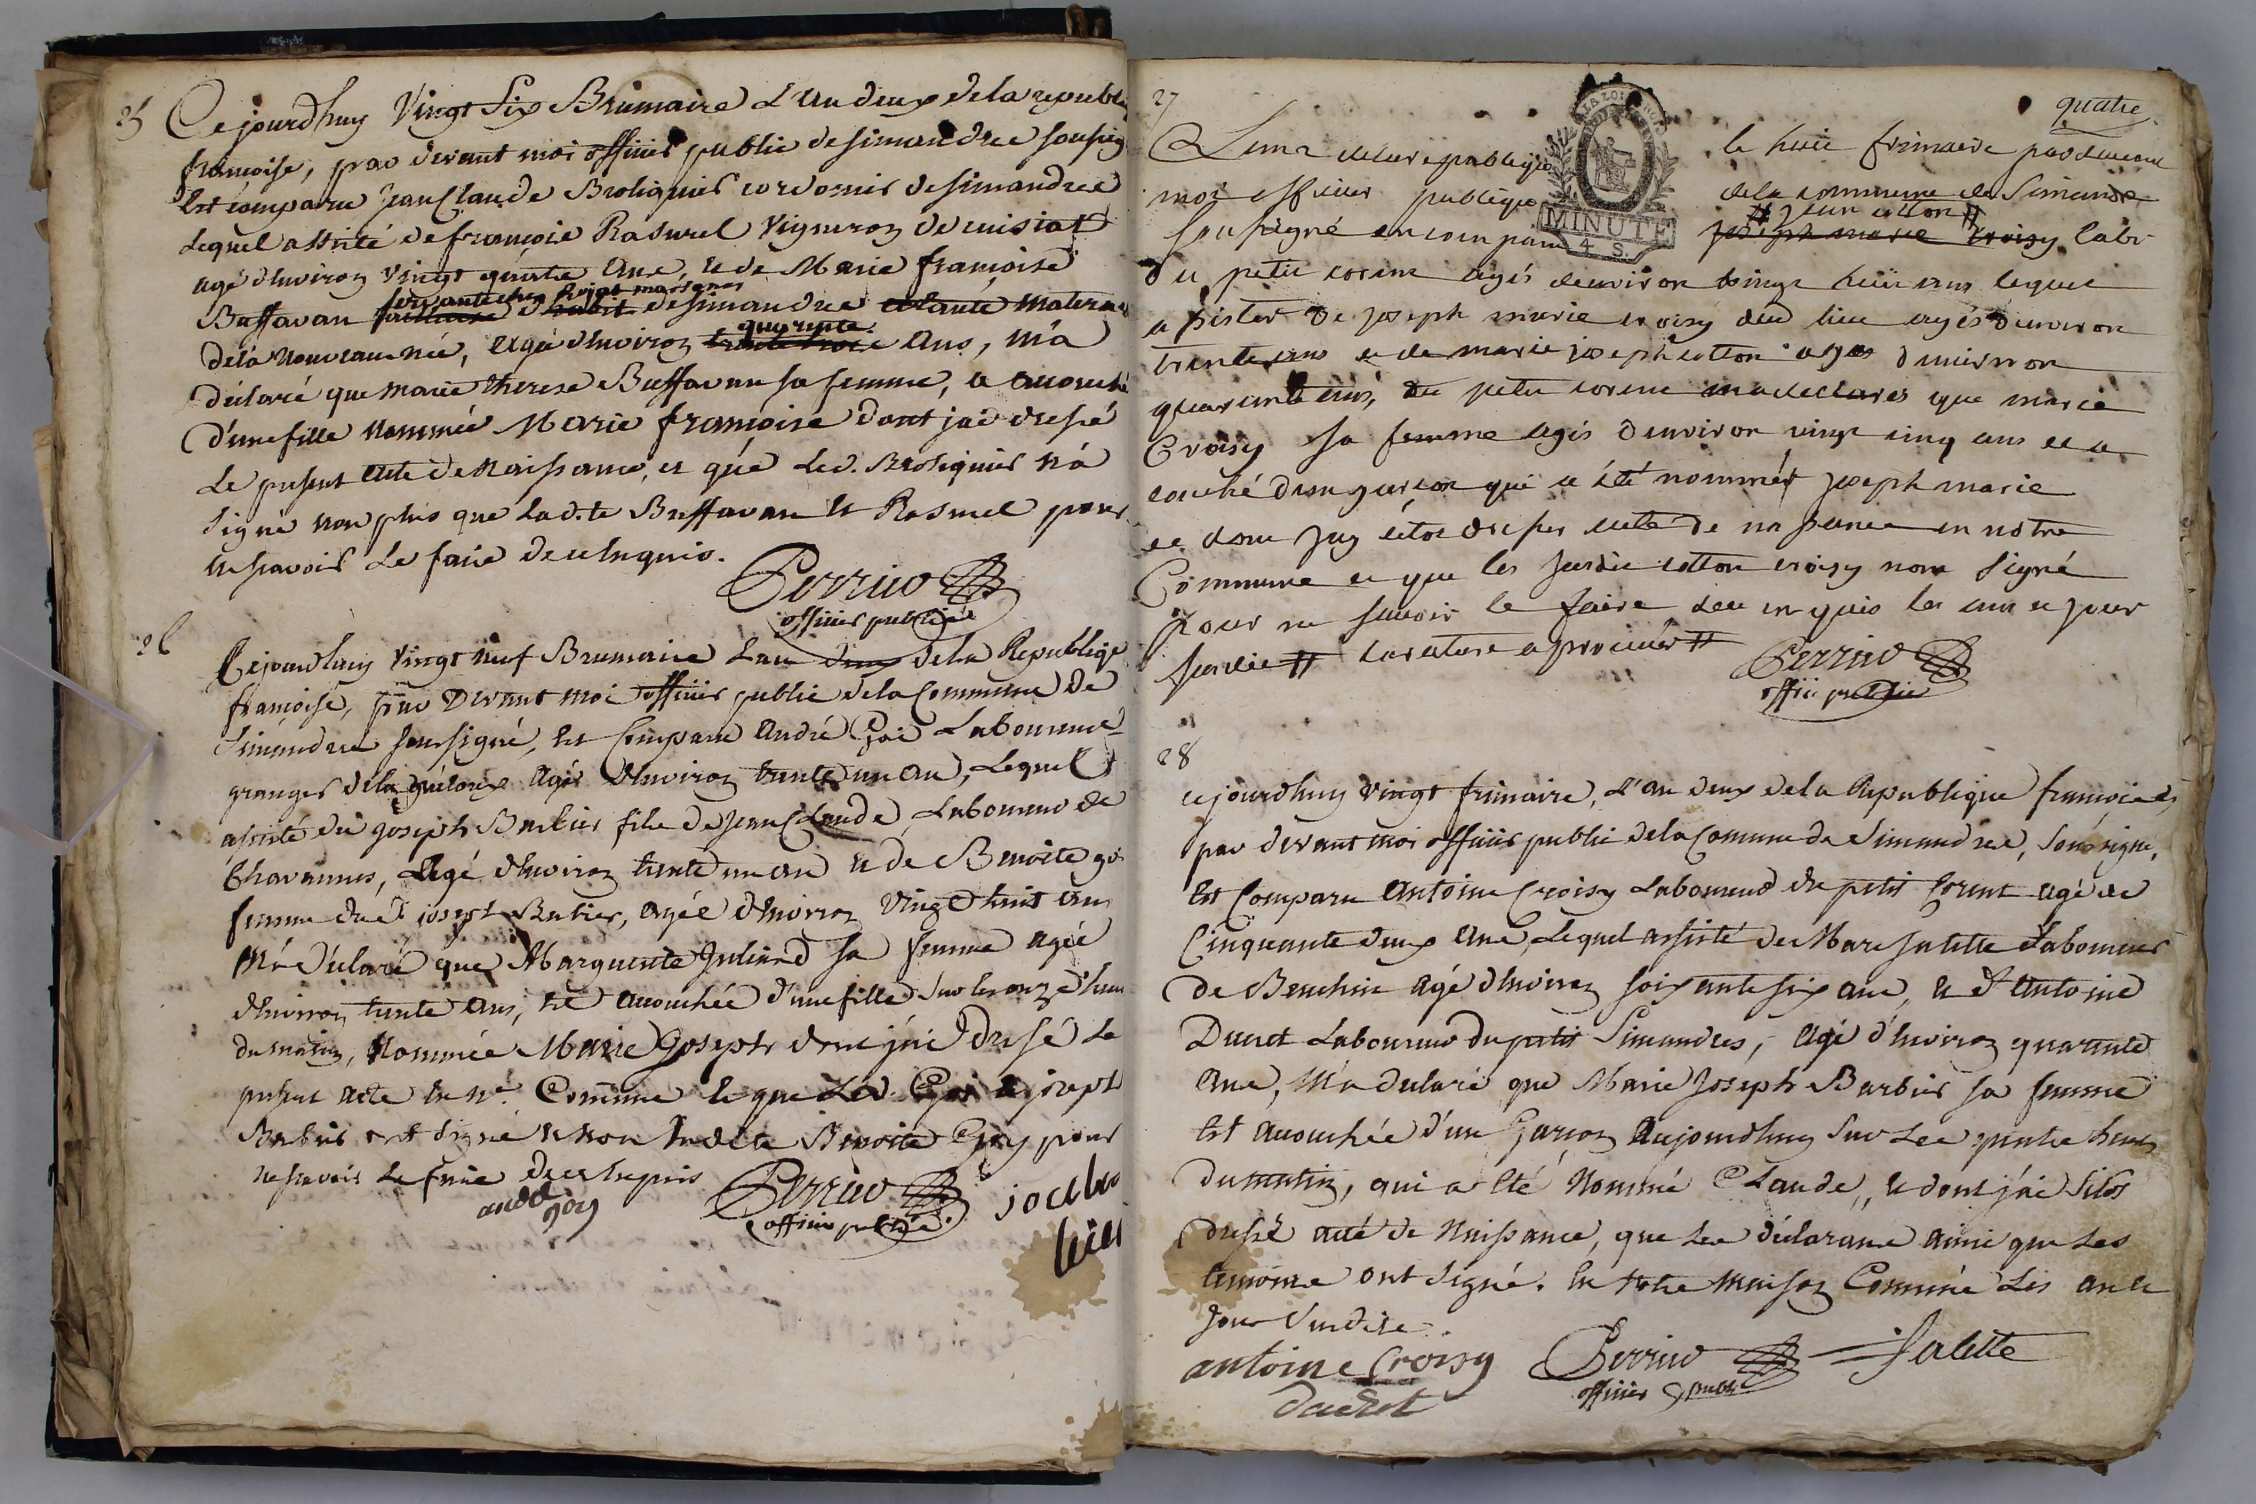 25
Cejourdhuy Vingt Six Brumaire L'an deux de la republi
françoise, par devant moi officier public de simandre soussig
Est comparu Jean Claude Broliquier cordonnier de simandre
Lequel assisté de françois Rasurel Vigneron de cuisiat
agé d'Environ Vingt quatre ans, et de Marie françoise
servante chez
Buffavan de simandre tante maternel
quarente
de la nouveau née, agée d'Environ ans, m'a
déclaré que marie therese Buffavan sa femme, a accouché
d'une fille nommée Marie françoise dont jai dressé
Le present acte de Naissance, et que Led. Broliquier n'a
signé non plus que Lad.te Buffavan et Rasurel pour
ne savoir Le faire de ce Enquis.
Perrin
officier public
26
Cejourdhuy Vingt neuf Brumaire Lan deux de la Republiqe
françoise, par Devant moi officier public de la Commune de
Simandre soussigné, Est Comparu André Goi Laboureur
granger de la agé d'Environ trente un an, Lequel
assisté de joseph Barbier fils de Jean Claude, Laboureur de
Chavannes, Agé d'Environ trente un an et de Benoite goi
femme dud. joseph Barbier, agée d'Environ Vingt huit ans
M'a déclaré que Marguerite Juliand sa femme agée
d'Environ trente ans, est accouchée d'une fille sur les onze heure
du matin, Nommée Marie Joseph dont jai dressé Le
present acte En n.e Comune et que Led. Goi et joseph
Barbier ont signé et non Ladite Benoite Goy pour
ne savoir Le faire de ce Enquis
andré goy
Perrin
officier public
quatre
27
MINUTE
4 S.
L'an 2 de la republiqe le huit frimaire pardevant
moi officier publique de la commune de Simandre
# jean cotton #
soussigné en comparu joseph marie croisy labr
du petit corent agés d'environ vingt huit ans lequel
a sister de joseph marie croisy dud lieu agés d'environ
trente ans et de marie joseph cotton agés d'environ
quarante ans, du petit corent ma declarés que marie
Croisy sa femme agés d'environ vingt cinq ans et a
couché d'un garçon qui a été nommér joseph marie
et dont jay sitot dresser acte de nasance en notre
Commune et que les susdit cotton croisy nont signé
pour ne savoir le faire de ce enquis les an et jour
susdit # la rature aprouvér #
Perrin
officier public
28
cejourdhuy vingt frimaire, L'an deux de la Republique françoise
par devant moi officier public de la Comune de Simandre, Soussigné,
Est Comparu Antoine Croisy Laboureur du petit Corent agé de
Cinquante deux ans, Lequel assisté de Marc Jalette Laboureur
De Beuchin agé d'Environ soixante six ans, et d'Antoine
Ducret Laboureur du petit Simandres, Agé d'Environ quarante
ans, M'a declaré que Marie Joseph Barbier sa femme
Est accouchée d'un Garçon Aujourdhuy Sur Les quatre heures
du matin, qui a Eté Nommé Claude, et dont jai Sitôt
dressé acte de Naissance, que Les déclarans ainsi que Les
temoins ont signé. En Notre Maison Commune Les an et
Jour Susdits.
antoine Croisy
Perrin
officier public
Jalette
Ducret